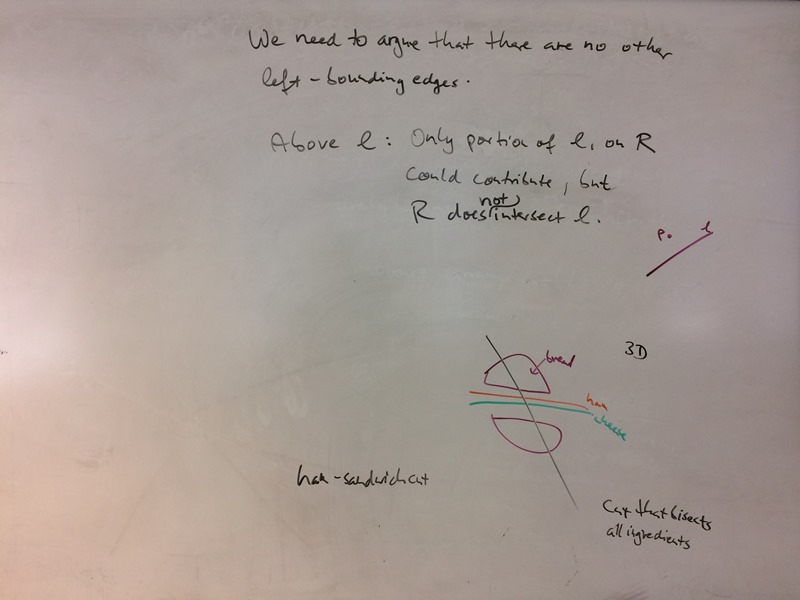 We need to argue that there are no other
left-bounding edges.
Above l: Only portion of l, on R
could contribute, but
R does not intersect l.
p. l
3D
bread
ham
cheese
ham-sandwich cut
Cut that bisects
all ingredients